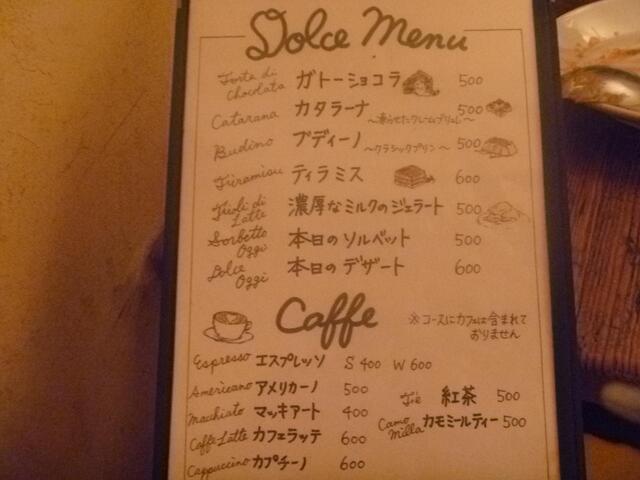 Dolce Menu
Torta di Chocolata ガトーショコラ 500
Catarana カタラーナ ～凍らせたクレームブリュレ～ 500
Budino ブディーノ ～クラシックプリン～ 500
Tiramisu ティラミス 600
Fioli di Latte 濃厚なミルクのジェラート 500
Sorbetto Oggi 本日のソルベット 500
Dolce Oggi 本日のデザート 600
Caffe
※コースにカフェは含まれて
おりません
Espresso エスプレッソ S 400 W 600
Americano アメリカーノ 500
Macchiato マッキアート 400
Caffe Latte カフェラッテ 600
Cappuccino カプチーノ 600
紅茶 500
Camo Milla カモミールティー 500